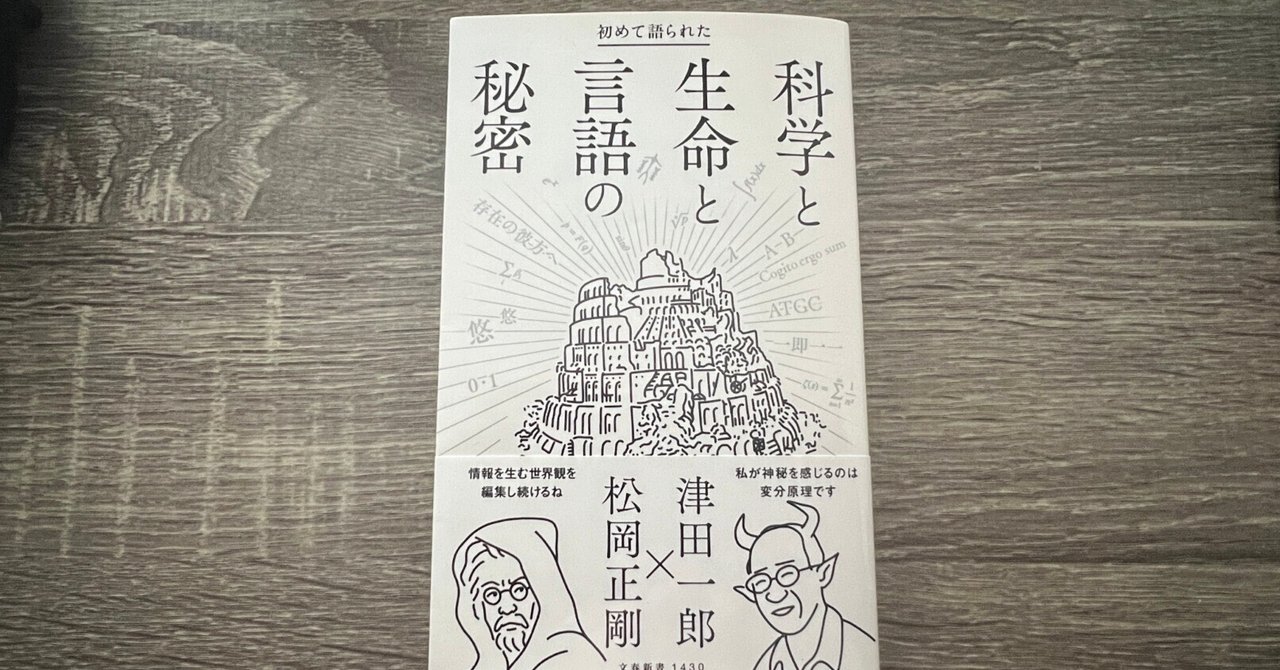 初めて語られた
科学と
生命と
言語の
秘密
存在の彼方へ
悠
悠
0・1
A-B-
Cogito ergo sum
ATGC
一即一一
私が神秘を感じるのは
変分原理です
津田一郎
×
松岡正剛
情報を生む世界観を
編集し続けるね
文春新書 1430